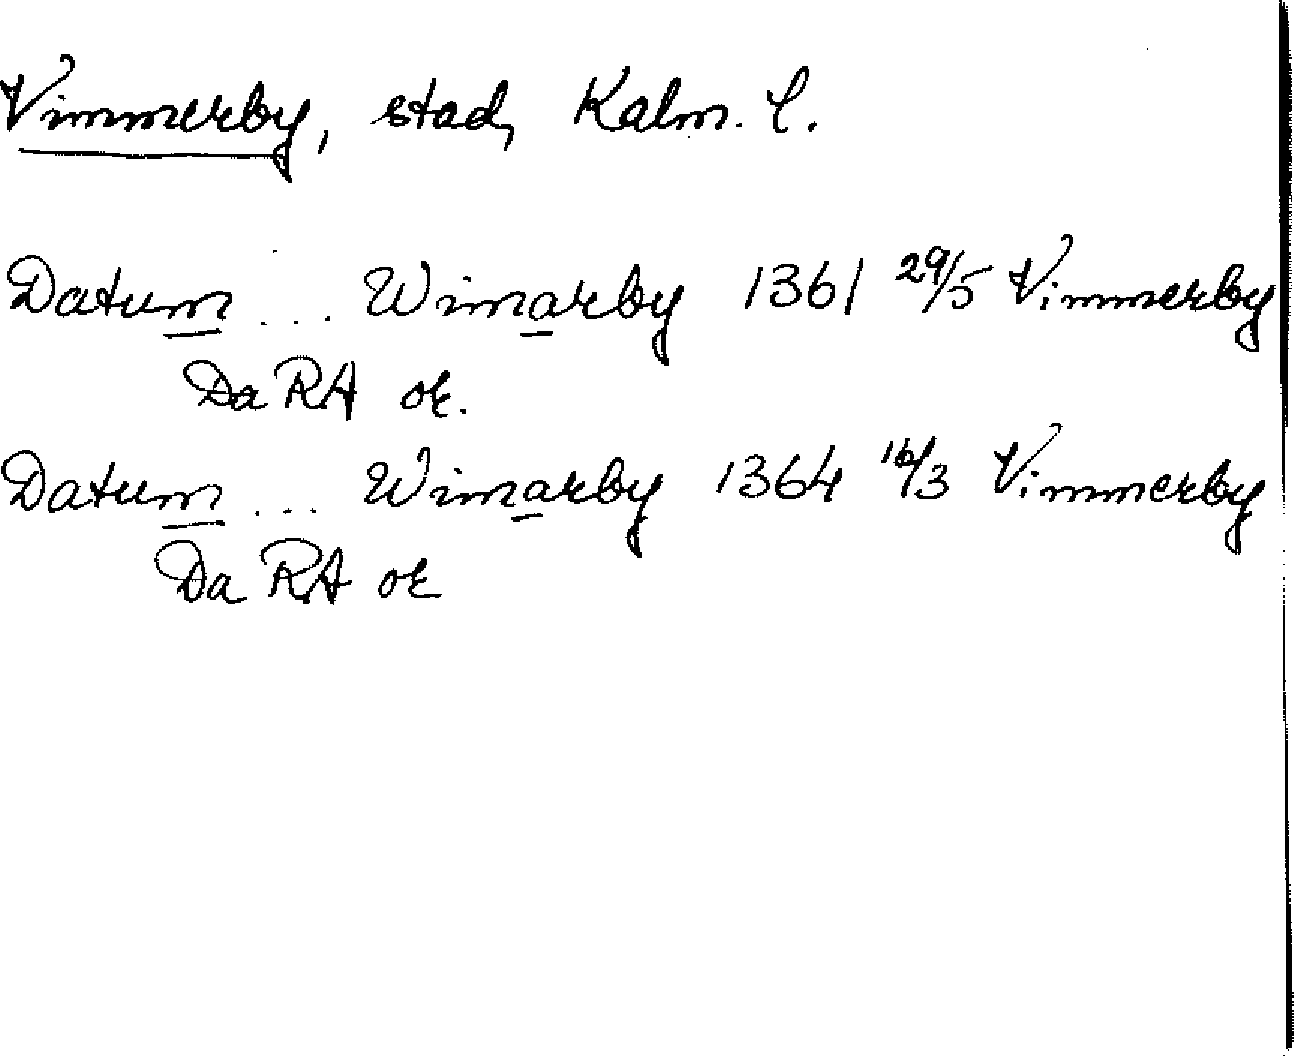 Vimmerby, stad, Kalm. l.
Datum ... Wimarby 1361 29/5 Vimmerby
Da RA or.
Datum ... Wimarby 1364 16/3 Vimmerby
Da RA or